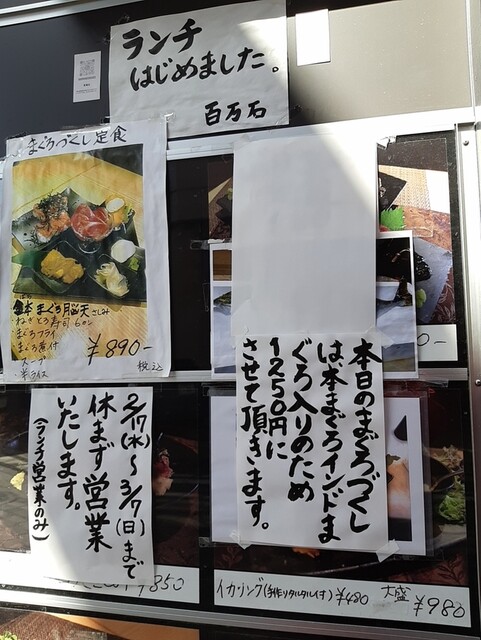 ランチ
はじめました。
百万石
まぐろづくし定食
本まぐろ脳天さしみ
・ねぎとろ寿司6カン
・まぐろフライ
・まぐろ煮付
・スープ
・半ライス
¥890-
税込
本日のまぐろづくし
は本まぐろインドま
ぐろ入りのため
1250円に
させて頂きます。
2/17(水)〜3/7(日)まで
休まず営業
いたします。
(ランチ営業のみ)
850
イカリング(手作りタルタル付)¥480 大盛 ¥980